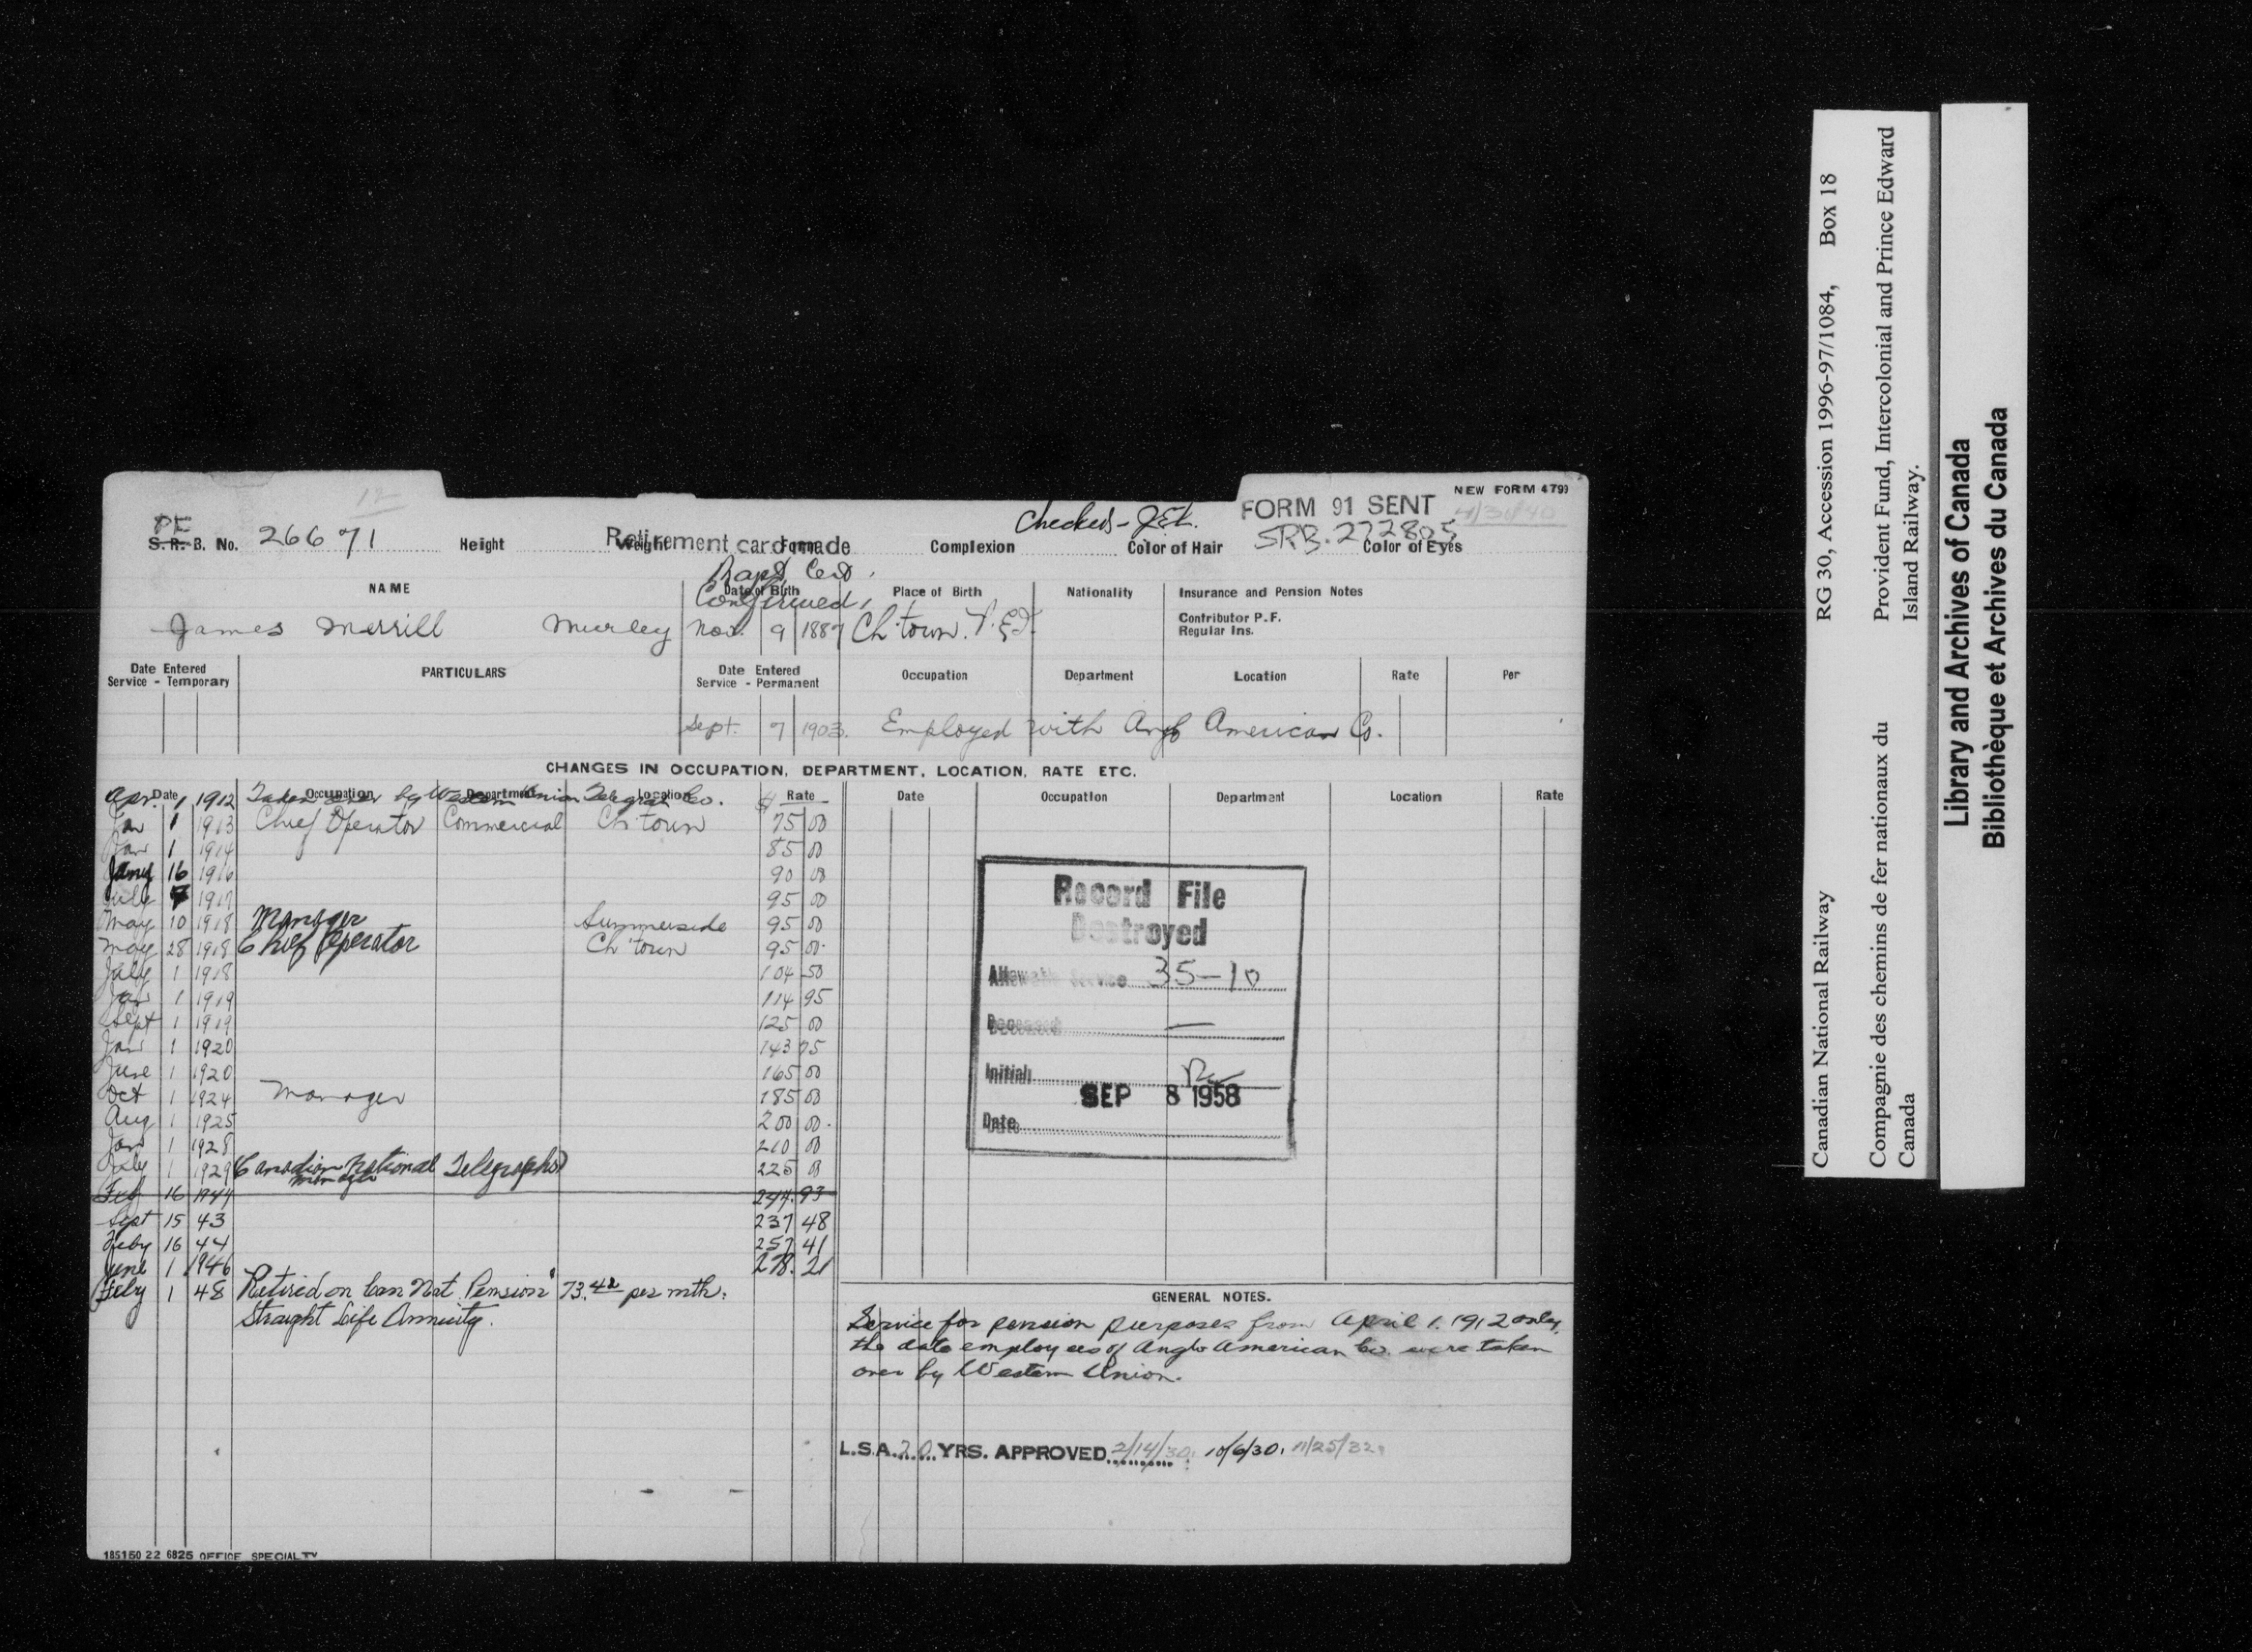 12
NEW FORM 4799
P.E.
S. R. B. No. 26671
Height
Weight
Retirement card made
Form
Checked - J.E.K.
Complexion
Color of Hair
FORM 91 SENT 4/30/40
SRB. 272805
Color of Eyes
Bapt Cert.
Confirmed,
NAME
Date of Birth
Place of Birth
Nationality
Insurance and Pension Notes
James Merrill Murley Nov. 9 1887 Ch'town. P.E.I.
Contributor P.F.
Regular Ins.
Date Entered Service - Temporary
PARTICULARS
Date Entered Service - Permanent
Occupation
Department
Location
Rate
Per
Sept. 7 1903. Employed with Anglo American Co.
CHANGES IN OCCUPATION, DEPARTMENT, LOCATION, RATE ETC.
Date Occupation Department Location Rate
Date Occupation Department Location Rate
Apr. 1 1912 Taken over by Western Union Telegraph Co. $
Jan 1 1913 Chief Operator Commercial Ch'town 75 00
Jan 1 1914 85 00
Jany 16 1916 90 00
July 1917 95 00
May 10 1918 Manager Summerside 95 00
May 28 1918 Chief Operator Ch'town 95 00
July 1 1918 104 50
Jan 1 1919 114 95
Sept 1 1919 125 00
Jan 1 1920 143 75
June 1 1920 165 00
Oct 1 1924 Manager 185 00
Aug 1 1925 200 00
Jan 1 1928 210 00
July 1 1929 Canadian National Telegraphs 225 00
Manager
Feb 16 1944 244.93
Sept 15 43 237 48
Feby 16 44 257 41
June 1 1946 278.21
Feby 1 48 Retired on Can Nat. Pension 73.42 per mth.
Straight Life Annuity.
Record File
Destroyed
Allowable Service 35-10
Deceased —
Initial
SEP 8 1958
Date
GENERAL NOTES.
Service for pension purposes from April 1. 1912 only,
the date employees of Anglo American Co. were taken
over by Western Union.
L.S.A. 20 YRS. APPROVED 2/14/30. 10/6/30. 11/25/32.
185150 22 6825 OFFICE SPECIALTY
Canadian National Railway RG 30, Accession 1996-97/1084, Box 18
Compagnie des chemins de fer nationaux du Canada
Provident Fund, Intercolonial and Prince Edward Island Railway.
Library and Archives of Canada
Bibliothèque et Archives du Canada